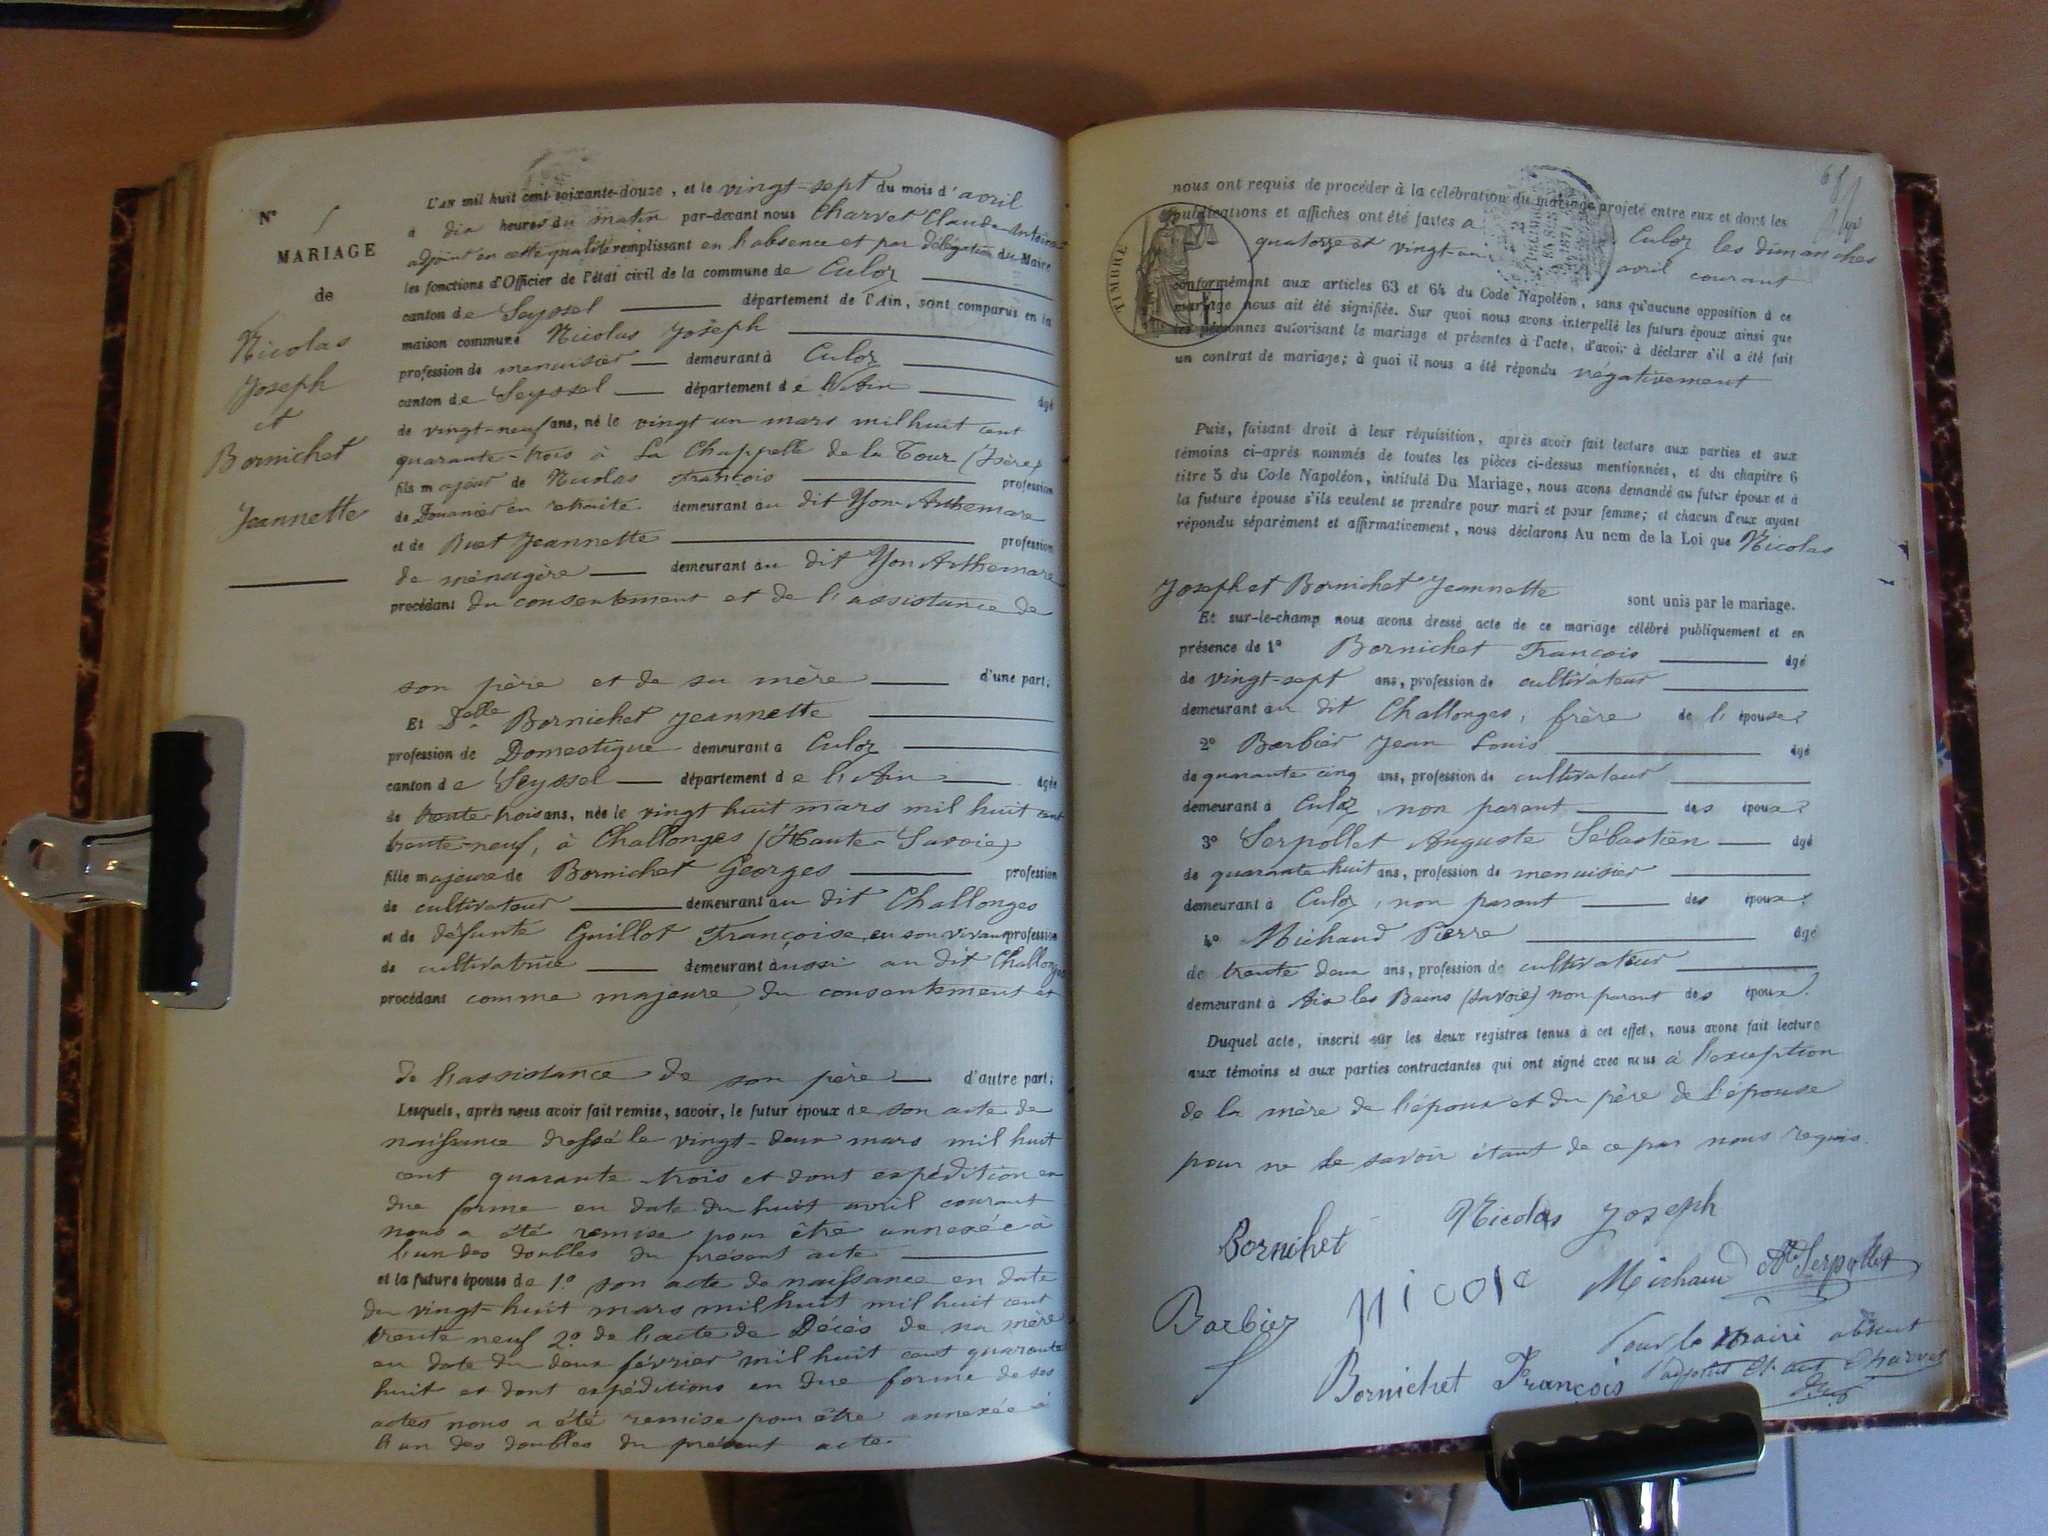 N°
MARIAGE
de
Nicolas
Joseph
et
Bornichet
Jeannette
L'AN mil huit cent soixante-douze, et le vingt-sept du mois d'avril
a dix heures du matin par-devant nous Charvet Claude-Antoine
adjoint en cette qualité remplissant en l'absence et par délégation du Maire
les fonctions d'Officier de l'état civil de la commune de Culoz
canton de Seyssel département de l'Ain, sont comparus en la
maison commune Nicolas Joseph
profession de menuisier demeurant à Culoz
canton de Seyssel département de l'Ain âgé
de vingt-neuf ans, né le vingt un mars mil huit cent
quarante-trois à La Chappelle de la Tour (Isère)
fils majeur de Nicolas François profession
de Douanier en retraite demeurant au dit Yon-Arthemare
et de Buet Jeannette profession
de ménagère demeurant au dit Yon Arthemare
procédant du consentement et de l'assistance de
son père et de sa mère d'une part;
Et Delle Bornichet Jeannette
profession de Domestique demeurant à Culoz
canton de Seyssel département de l'Ain âgée
de trente trois ans, née le vingt huit mars mil huit cent
trente-neuf, à Challonges (Haute-Savoie)
fille majeure de Bornichet Georges profession
de cultivateur demeurant au dit Challonges
et de défunte Guillot Françoise, en son vivant profession
de cultivatrice demeurant aussi au dit Challonges
procédant comme majeure du consentement et
de l'assistance de son père d'autre part;
Lesquels, après nous avoir fait remise, savoir, le futur époux de son acte de
naissance dressé le vingt-deux mars mil huit
cent quarante-trois et dont expédition en
due forme en date du huit avril courant
nous a été remise pour être annexée à
l'un des doubles du présent acte
et la future épouse de 1° son acte de naissance en date
du vingt-huit mars mil huit mil huit cent
trente neuf 2° de l'acte de Décès de sa mère
en date du deux février mil huit cent quarante
huit et dont expéditions en due forme de ses
actes nous a été remise pour être annexée à
l'un des doubles du présent acte.
nous ont requis de procéder à la célébration du mariage projeté entre eux et dont les
publications et affiches ont été faites a Culoz les dimanches
quatorze et vingt-un avril courant
TIMBRE
conformément aux articles 63 et 64 du Code Napoléon, sans qu'aucune opposition à ce
mariage nous ait été signifiée. Sur quoi nous avons interpellé les futurs époux ainsi que
les personnes autorisant le mariage et présentes à l'acte, d'avoir à déclarer s'il a été fait
un contrat de mariage; à quoi il nous a été répondu négativement
Puis, faisant droit à leur réquisition, après avoir fait lecture aux parties et aux
témoins ci-après nommés de toutes les pièces ci-dessus mentionnées, et du chapitre 6
titre 5 du Code Napoléon, intitulé Du Mariage, nous avons demandé au futur époux et à
la future épouse s'ils veulent se prendre pour mari et pour femme; et chacun d'eux ayant
répondu séparément et affirmativement, nous déclarons Au nom de la Loi que Nicolas
Joseph et Bornichet Jeannette sont unis par le mariage.
Et sur-le-champ nous avons dressé acte de ce mariage célébré publiquement et en
présence de 1° Bornichet François âgé
de vingt-sept ans, profession de cultivateur
demeurant au dit Challonges, frère de l'épouse
2° Barbier Jean Louis âgé
de quarante cinq ans, profession de cultivateur
demeurant à Culoz, non parent des époux
3° Serpollet Auguste Sébastien âgé
de quarante huit ans, profession de menuisier
demeurant à Culoz, non parent des époux
4° Michaud Pierre âgé
de trente deux ans, profession de cultivateur
demeurant à Aix les Bains (Savoie) non parent des époux
Duquel acte, inscrit sur les deux registres tenus à cet effet, nous avons fait lecture
aux témoins et aux parties contractantes qui ont signé avec nous à l'exception
de la mère de l'époux et du père de l'épouse
pour ne le savoir étant de ce par nous requis.
Bornichet Nicolas Joseph
Michaud Serpollet
Barbier
Pour le maire absent
Bornichet François
l'adjoint Charvet